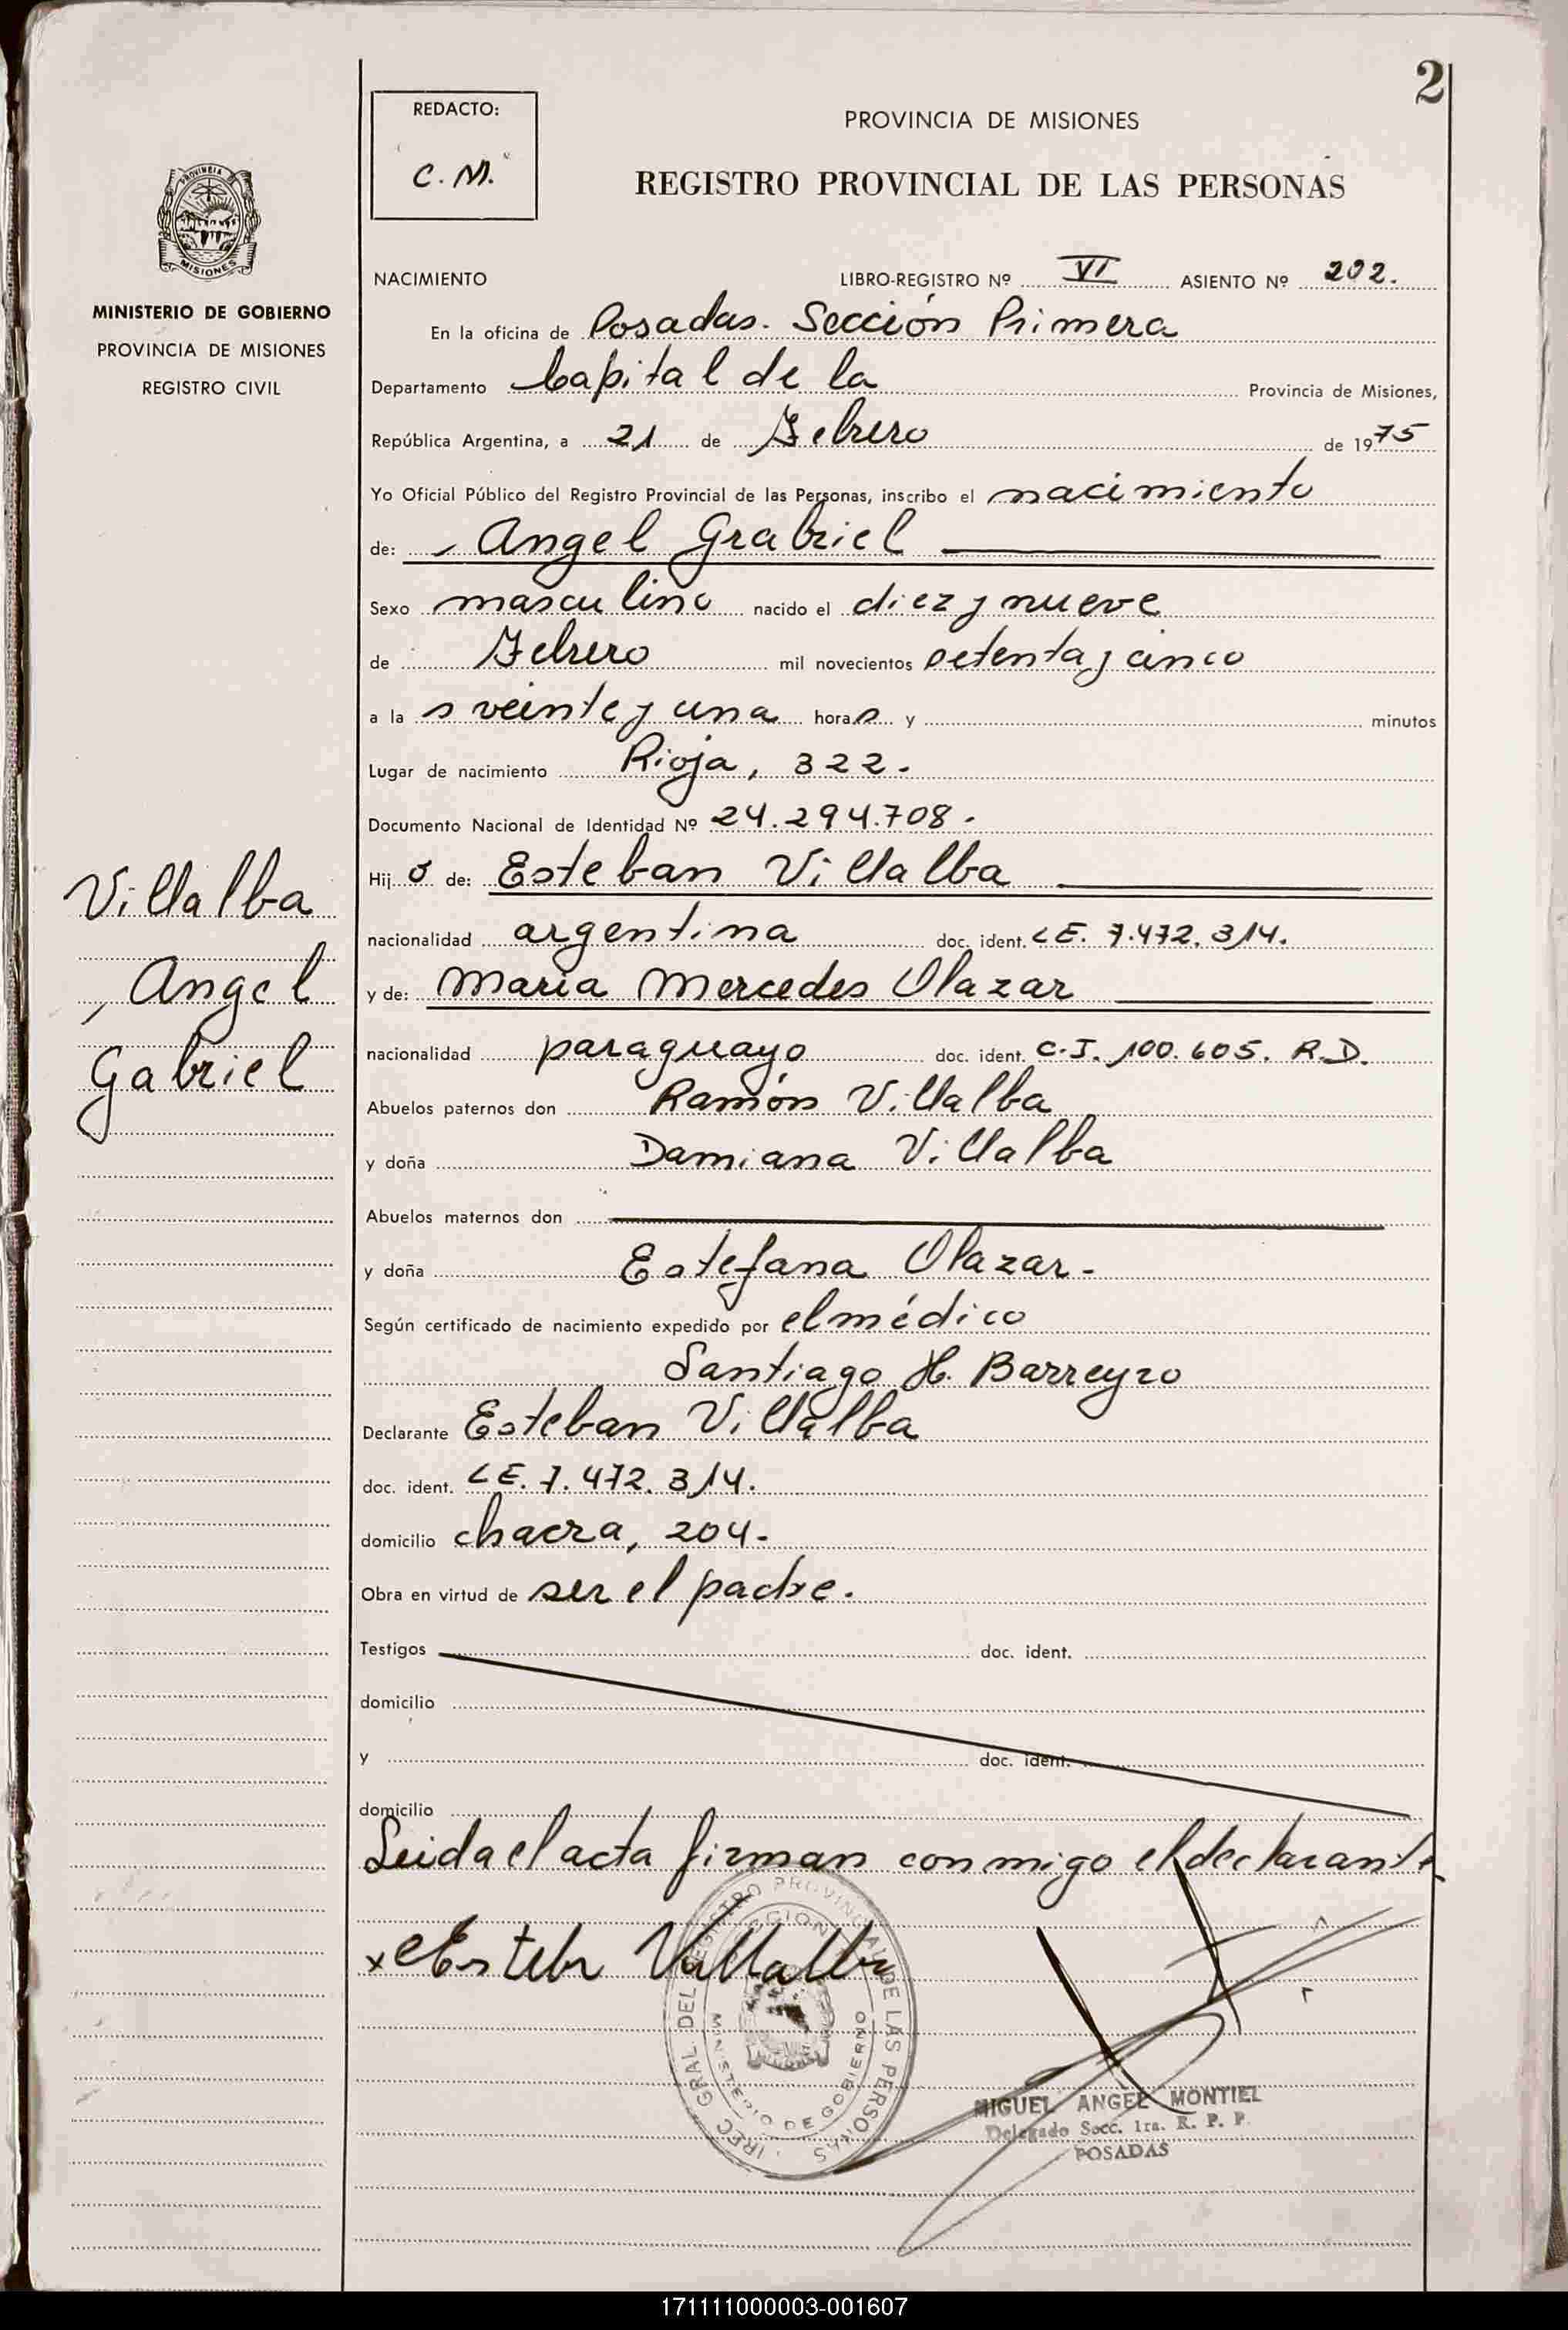 2
REDACTO:
C. M.
PROVINCIA DE MISIONES
REGISTRO PROVINCIAL DE LAS PERSONAS
PROVINCIA
MISIONES
MINISTERIO DE GOBIERNO
PROVINCIA DE MISIONES
REGISTRO CIVIL
NACIMIENTO LIBRO-REGISTRO Nº VI ASIENTO Nº 202.
En la oficina de Posadas. Sección Primera
Departamento Capital de la Provincia de Misiones,
República Argentina, a 21 de Febrero de 1975
Yo Oficial Público del Registro Provincial de las Personas, inscribo el nacimiento
de: Angel Grabriel
Sexo masculino nacido el diez y nueve
de Febrero mil novecientos setenta y cinco
a la s veinte y una horas y minutos
Lugar de nacimiento Rioja, 322.
Documento Nacional de Identidad Nº 24.294.708.
Hijo de: Esteban Villalba
nacionalidad argentina doc. ident. L E. 7.472.314.
y de: Maria Mercedes Olazar
nacionalidad paraguayo doc. ident. C.I. 100.605. R.D.
Abuelos paternos don Ramón Villalba
y doña Damiana Villalba
Abuelos maternos don
y doña Estefana Olazar-
Según certificado de nacimiento expedido por el médico
Santiago H. Barreyro
Declarante Esteban Villalba
doc. ident. L E. 7.472.314.
domicilio chacra, 204-
Obra en virtud de ser el padre.
Testigos doc. ident.
domicilio
y doc. ident.
domicilio
Leida el acta firman conmigo el declarante
x Esteba Villalba
Villalba
, Angel
Gabriel
DIREC. GRAL. DEL REGISTRO PROVINCIAL DE LAS PERSONAS
MINISTERIO DE GOBIERNO
MIGUEL ANGEL MONTIEL
Delegado Secc. 1ra. R. P. P.
POSADAS
171111000003-001607